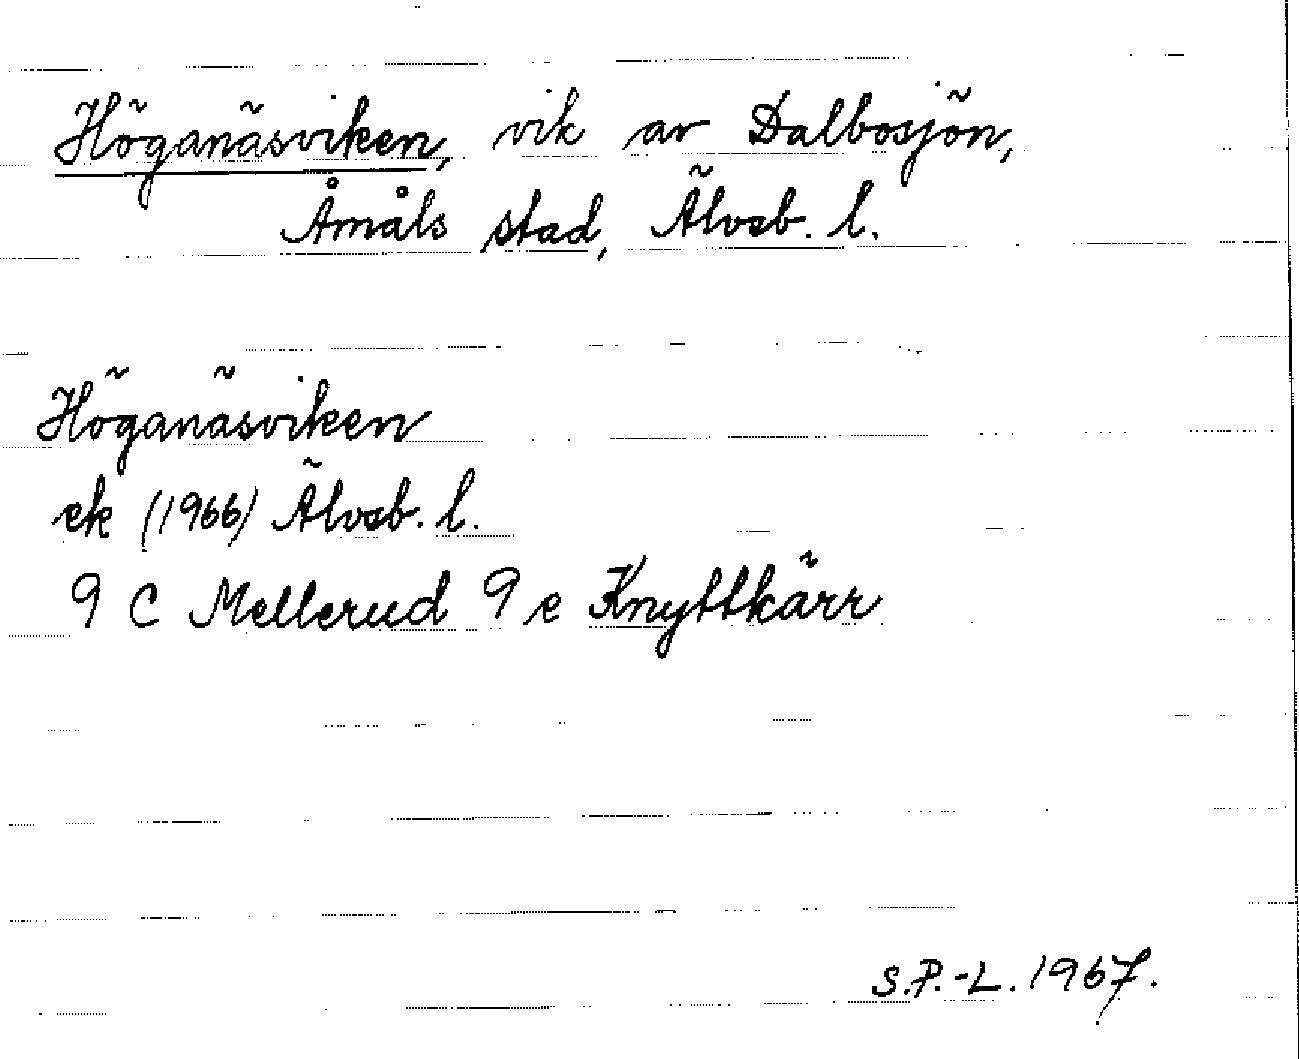 Höganäsviken, vik av Dalbosjön,
Åmåls stad, Älvsb. l.
Höganäsviken
ek (1966) Älvsb. l.
9 C Mellerud 9 e Knyttkärr
S.P.-L. 1967.